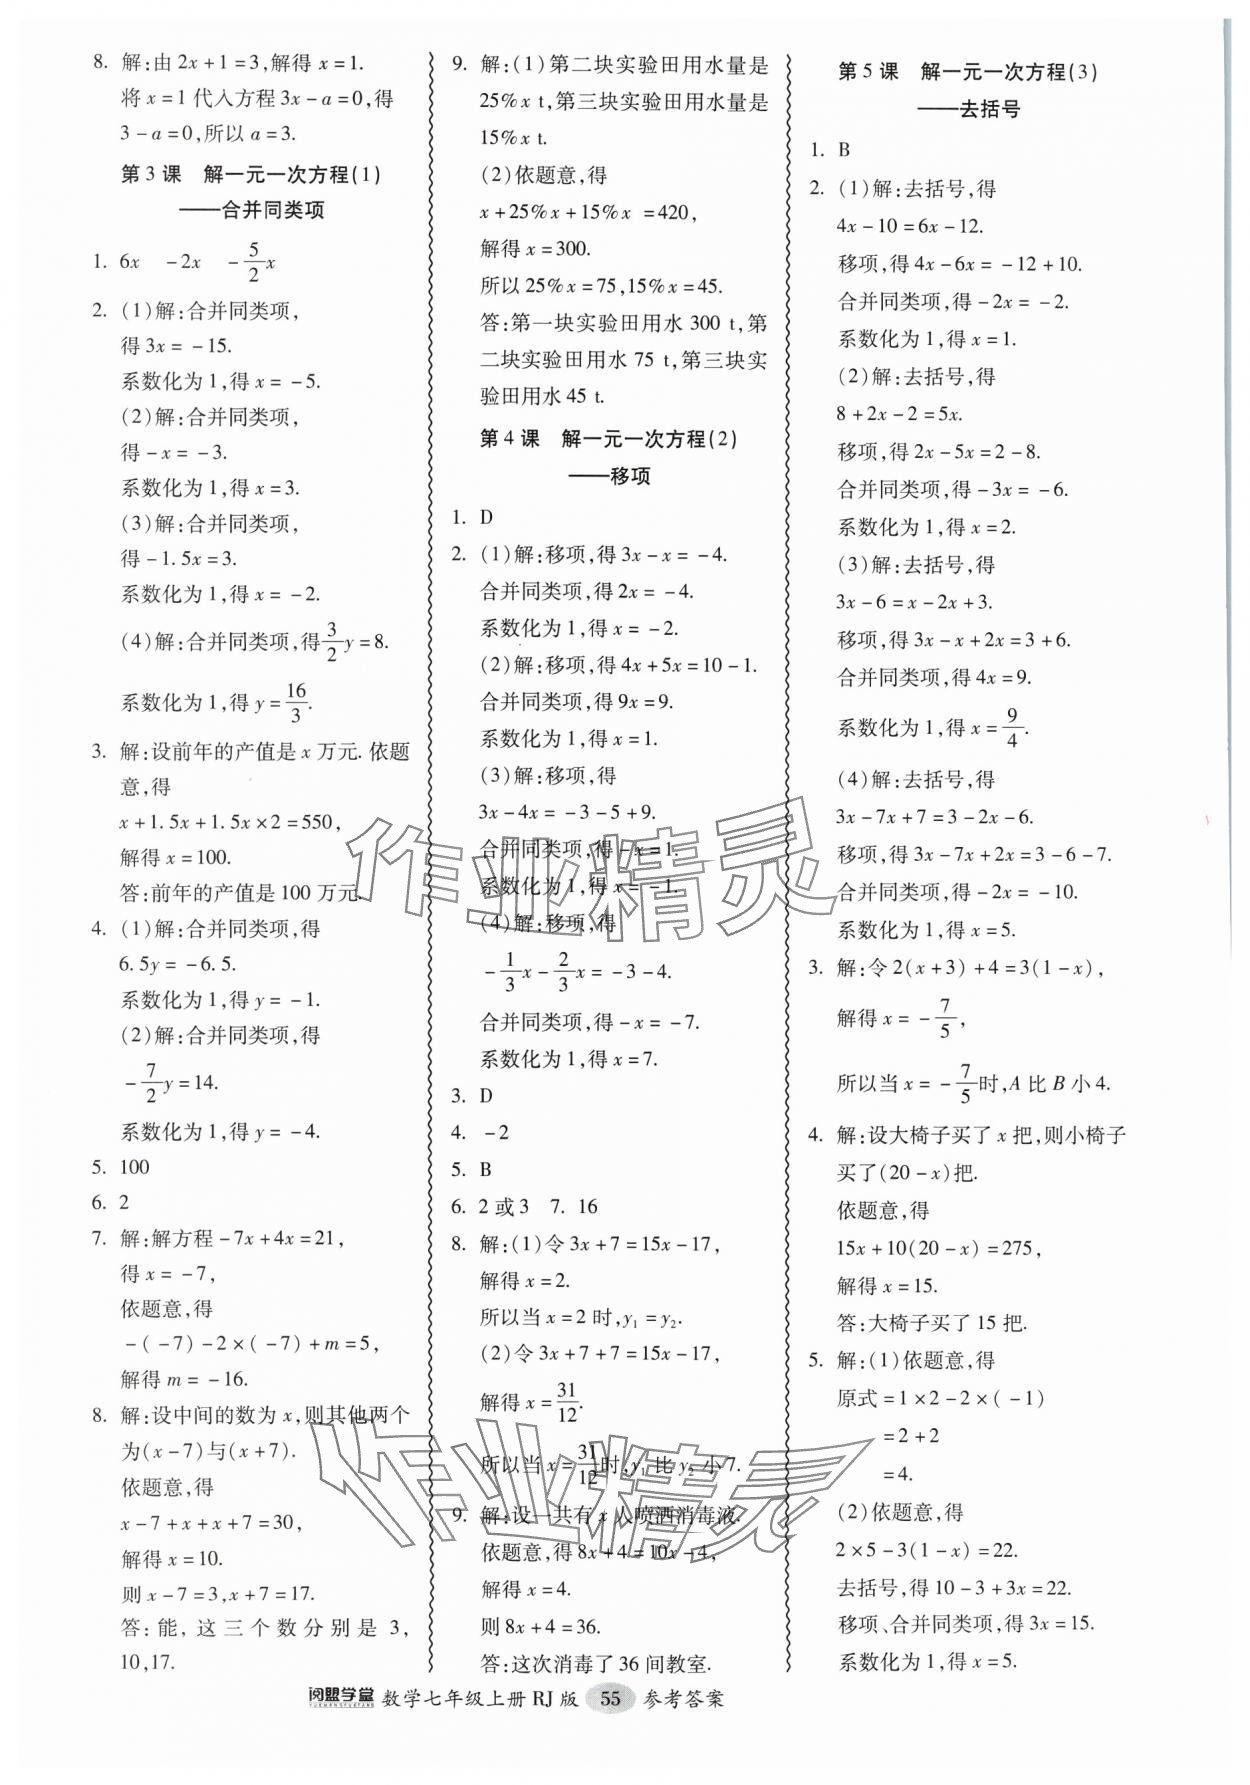 8. 解:由2x+1=3,解得x=1.
将x=1代入方程3x-a=0,得
3-a=0,所以a=3.
第3课 解一元一次方程(1)
——合并同类项
1. 6x -2x -5/2x
2. (1)解:合并同类项,
得3x=-15.
系数化为1,得x=-5.
(2)解:合并同类项,
得-x=-3.
系数化为1,得x=3.
(3)解:合并同类项,
得-1.5x=3.
系数化为1,得x=-2.
(4)解:合并同类项,得3/2y=8.
系数化为1,得y=16/3.
3. 解:设前年的产值是x万元.依题
意,得
x+1.5x+1.5x×2=550,
解得x=100.
答:前年的产值是100万元.
4. (1)解:合并同类项,得
6.5y=-6.5.
系数化为1,得y=-1.
(2)解:合并同类项,得
-7/2y=14.
系数化为1,得y=-4.
5. 100
6. 2
7. 解:解方程-7x+4x=21,
得x=-7,
依题意,得
-(-7)-2×(-7)+m=5,
解得m=-16.
8. 解:设中间的数为x,则其他两个
为(x-7)与(x+7).
依题意,得
x-7+x+x+7=30,
解得x=10.
则x-7=3,x+7=17.
答:能,这三个数分别是3,
10,17.
9. 解:(1)第二块实验田用水量是
25%x t,第三块实验田用水量是
15%x t.
(2)依题意,得
x+25%x+15%x=420,
解得x=300.
所以25%x=75,15%x=45.
答:第一块实验田用水300 t,第
二块实验田用水75 t,第三块实
验田用水45 t.
第4课 解一元一次方程(2)
——移项
1. D
2. (1)解:移项,得3x-x=-4.
合并同类项,得2x=-4.
系数化为1,得x=-2.
(2)解:移项,得4x+5x=10-1.
合并同类项,得9x=9.
系数化为1,得x=1.
(3)解:移项,得
3x-4x=-3-5+9.
合并同类项,得-x=1.
系数化为1,得x=-1.
(4)解:移项,得
-1/3x-2/3x=-3-4.
合并同类项,得-x=-7.
系数化为1,得x=7.
3. D
4. -2
5. B
6. 2或3 7. 16
8. 解:(1)令3x+7=15x-17,
解得x=2.
所以当x=2时,y₁=y₂.
(2)令3x+7+7=15x-17,
解得x=31/12.
所以当x=31/12时,y₁比y₂小7.
9. 解:设一共有x人喷洒消毒液.
依题意,得8x+4=10x-4,
解得x=4.
则8x+4=36.
答:这次消毒了36间教室.
第5课 解一元一次方程(3)
——去括号
1. B
2. (1)解:去括号,得
4x-10=6x-12.
移项,得4x-6x=-12+10.
合并同类项,得-2x=-2.
系数化为1,得x=1.
(2)解:去括号,得
8+2x-2=5x.
移项,得2x-5x=2-8.
合并同类项,得-3x=-6.
系数化为1,得x=2.
(3)解:去括号,得
3x-6=x-2x+3.
移项,得3x-x+2x=3+6.
合并同类项,得4x=9.
系数化为1,得x=9/4.
(4)解:去括号,得
3x-7x+7=3-2x-6.
移项,得3x-7x+2x=3-6-7.
合并同类项,得-2x=-10.
系数化为1,得x=5.
3. 解:令2(x+3)+4=3(1-x),
解得x=-7/5,
所以当x=-7/5时,A比B小4.
4. 解:设大椅子买了x把,则小椅子
买了(20-x)把.
依题意,得
15x+10(20-x)=275,
解得x=15.
答:大椅子买了15把.
5. 解:(1)依题意,得
原式=1×2-2×(-1)
=2+2
=4.
(2)依题意,得
2×5-3(1-x)=22.
去括号,得10-3+3x=22.
移项、合并同类项,得3x=15.
系数化为1,得x=5.
作业精灵
作业精灵
阅盟学堂 数学七年级上册 RJ版 55 参考答案